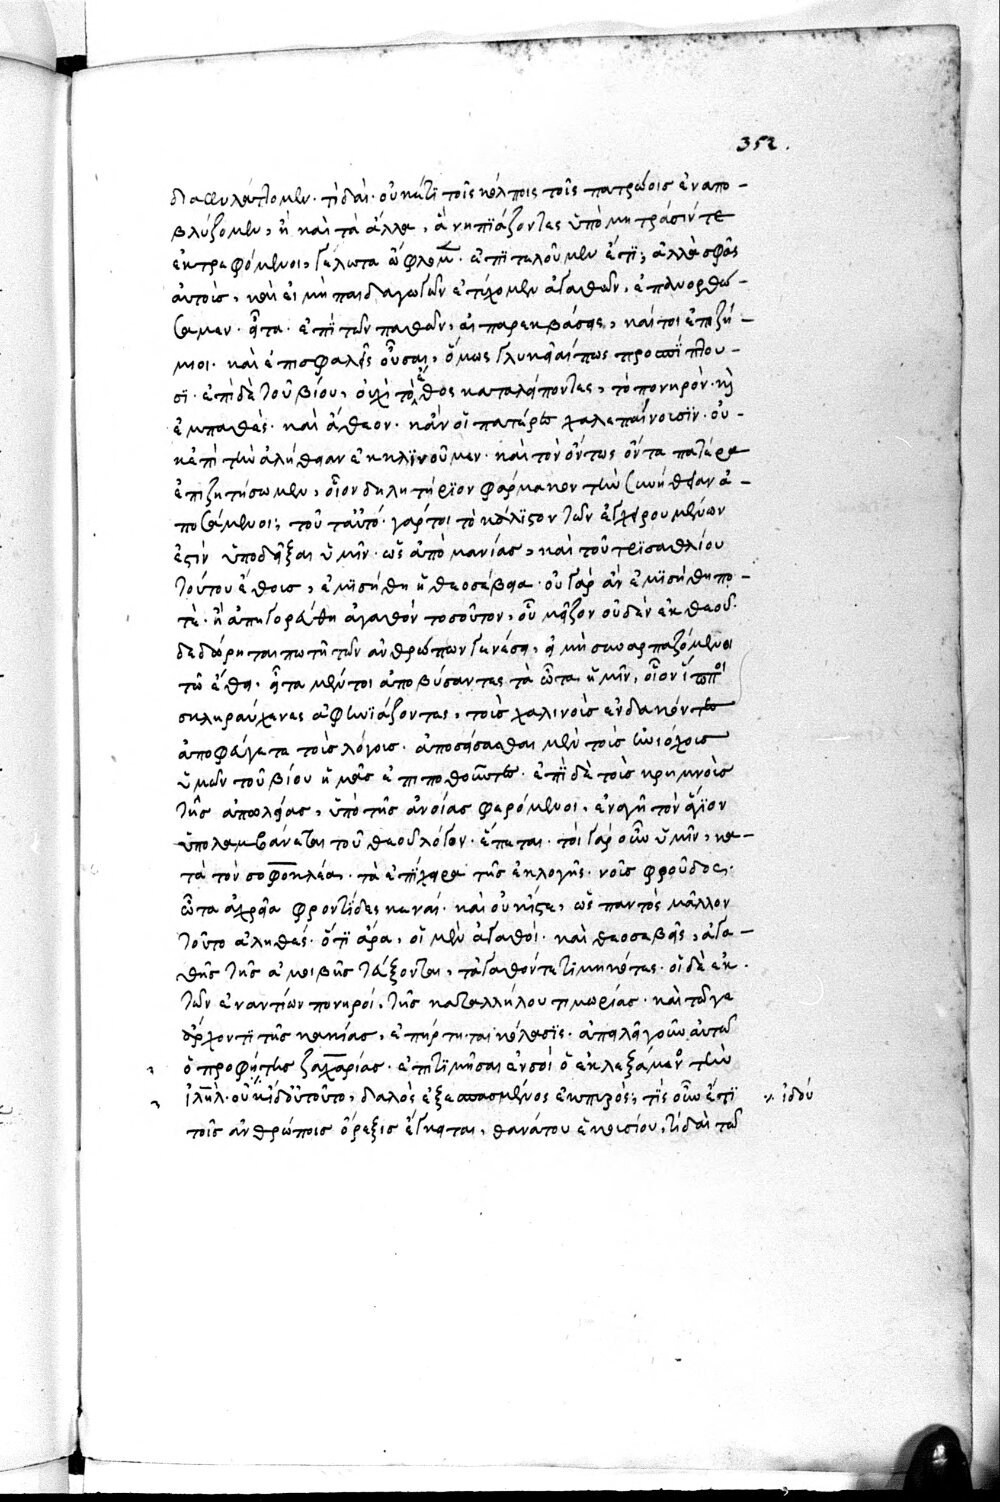 352.
διαφυλάττομεν· τί δαὶ· οὐκέτι τοῖς κόλποις τοῖς πατρώοις ἐναπο-
βλύζομεν, ἢ καὶ τὰ ἄλλα, ἃ νηπιάζοντες ὑπὸ μητράσιν τε
ἐκτρεφόμενοι, γέλωτα ὤφλομεν· ἐπιτελοῦμεν ἔτι; ἀλλὰ σφᾶς
αὐτοὺς, καὶ εἰ μὴ παιδαγωγῶν ἐτύχομεν ἀγαθῶν, ἐπανορθώ-
σαμεν· εἶτα· ἐπὶ τῶν παθῶν, αἱ παρεκβάσεις, καίτοι ἐπιζή-
μιοι· καὶ ἐπισφαλεῖς οὖσαι, ὅμως γλυκεῖαί πως προσπίπτου-
σι· ἐπὶ δὲ τοῦ βίου, οὐχὶ τὸ ἔθος καταλιπόντες, τὸ πονηρὸν· καὶ
ἐμπαθὲς· καὶ ἄθεον· κἂν οἱ πατέρες χαλεπαίνοισιν· οὐ-
κ ἐπὶ τὴν ἀλήθειαν ἐκκλινοῦμεν· καὶ τὸν ὄντως ὄντα πατέρα
ἐπιζητήσωμεν, οἷον δηλητήριον φάρμακον τὴν συνήθειαν ἀ-
πωσάμενοι; τοῦτ' αὐτό· γάρ τοι τὸ κάλλιστον τῶν ἐγχειρουμένων
ἐστὶν ὑποδεῖξαι ὑμῖν· ὡς ἀπὸ μανίας, καὶ τοῦ τρισαθλίου
τούτου ἔθους, ἐμισήθη ἡ θεοσέβεια· οὐ γὰρ ἂν ἐμισήθη πο-
τὲ· ἢ ἀπηγορεύθη ἀγαθὸν τοσοῦτον, οὗ μεῖζον οὐδὲν ἐκ θεοῦ
δεδώρηταί πω τῇ τῶν ἀνθρώπων γενέσει, εἰ μὴ συναρπαζόμενοι
τῷ ἔθει· εἶτα μέντοι ἀποβύσαντες τὰ ὦτα ἡμῖν, οἷον ἵπποι
σκληραύχενες ἀφηνιάζοντες, τοὺς χαλινοὺς ἐνδακόντες
ἀποφεύγετε τοὺς λόγους· ἀποσείσασθαι μὲν τοὺς ἡνιόχους
ὑμῶν τοῦ βίου ἡμᾶς ἐπιποθοῦντες· ἐπὶ δὲ τοὺς κρημνοὺς
τῆς ἀπωλείας, ὑπὸ τῆς ἀνοίας φερόμενοι, ἐναγῆ τὸν ἅγιον
ὑπολαμβάνετε τοῦ θεοῦ λόγον· ἕπεται· τοι γὰρ οὖν ὑμῖν, κα-
τὰ τὸν σοφοκλέα· τὰ ἐπίχειρα τῆς ἐκλογῆς· νοῦς φροῦδος·
ὦτα ἀχρεῖα φροντίδες κεναί· καὶ οὐκ ἴστε, ὡς παντὸς μᾶλλον
τοῦτο ἀληθές· ὅτι ἄρα, οἱ μὲν ἀγαθοί· καὶ θεοσεβεῖς, ἀγα-
θῆς τῆς ἀμοιβῆς τεύξονται, τἀγαθόν τετιμηκότες· οἱ δὲ ἐκ·
τῶν ἐναντίων πονηροί, τῆς καταλλήλου τιμωρίας· καὶ τῷ γε
ἄρχοντι τῆς κακίας, ἐπήρτηται κόλασις· ἀπειλεῖ γοῦν αὐτῷ
ὁ προφήτης ζαχαρίας· ἐπιτιμήσαι ἐν σοὶ ὁ ἐκλεξάμενος τὴν
ἰλὴλ· οὐκ ἰδοὺ τοῦτο, δαλὸς ἐξεσπασμένος ἐκ πυρός; τίς οὖν ἔτι
ἰδού
τοῖς ἀνθρώποις ὄρεξις ἔγκειται, θανάτου ἑκουσίου, τί δαὶ τῷ